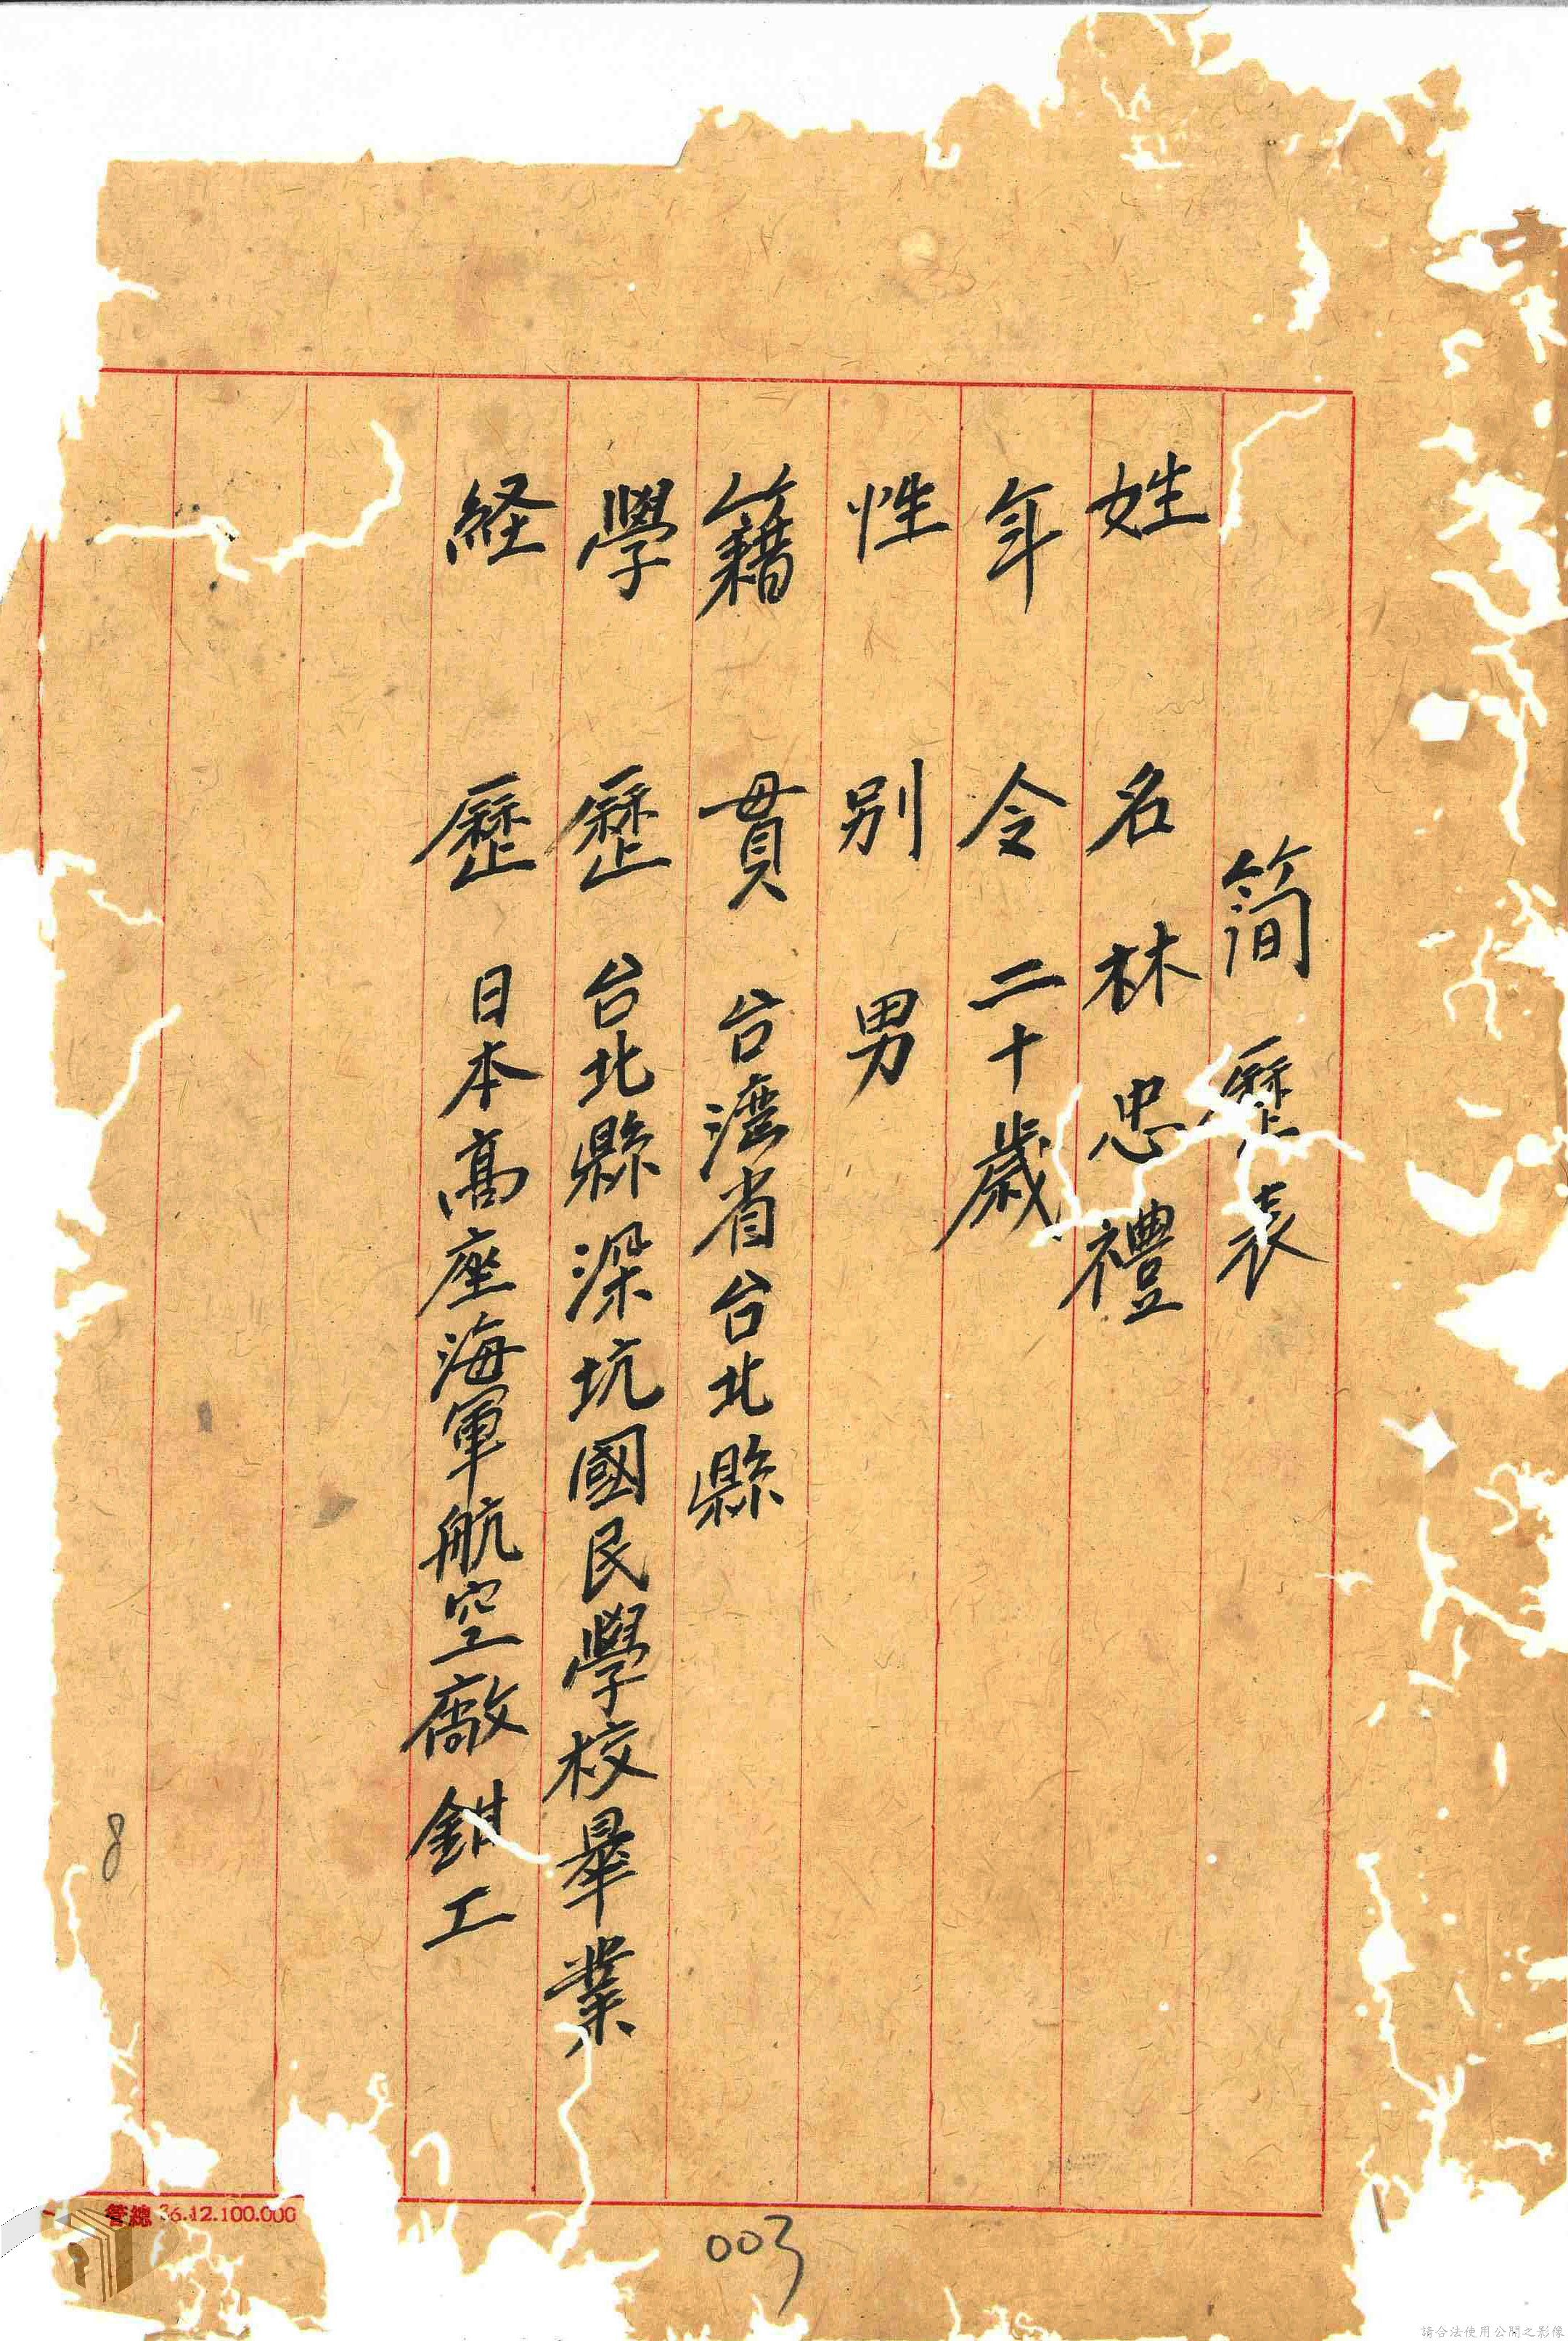 简歷表
姓名 林忠禮
年令 二十歲
性别 男
籍貫 台湾省台北縣
學歷 台北縣深坑國民學校畢業
経歷 日本髙座海軍航空廠鉗工
8
管總 36.12.100.000
003
請合法使用公開之影像